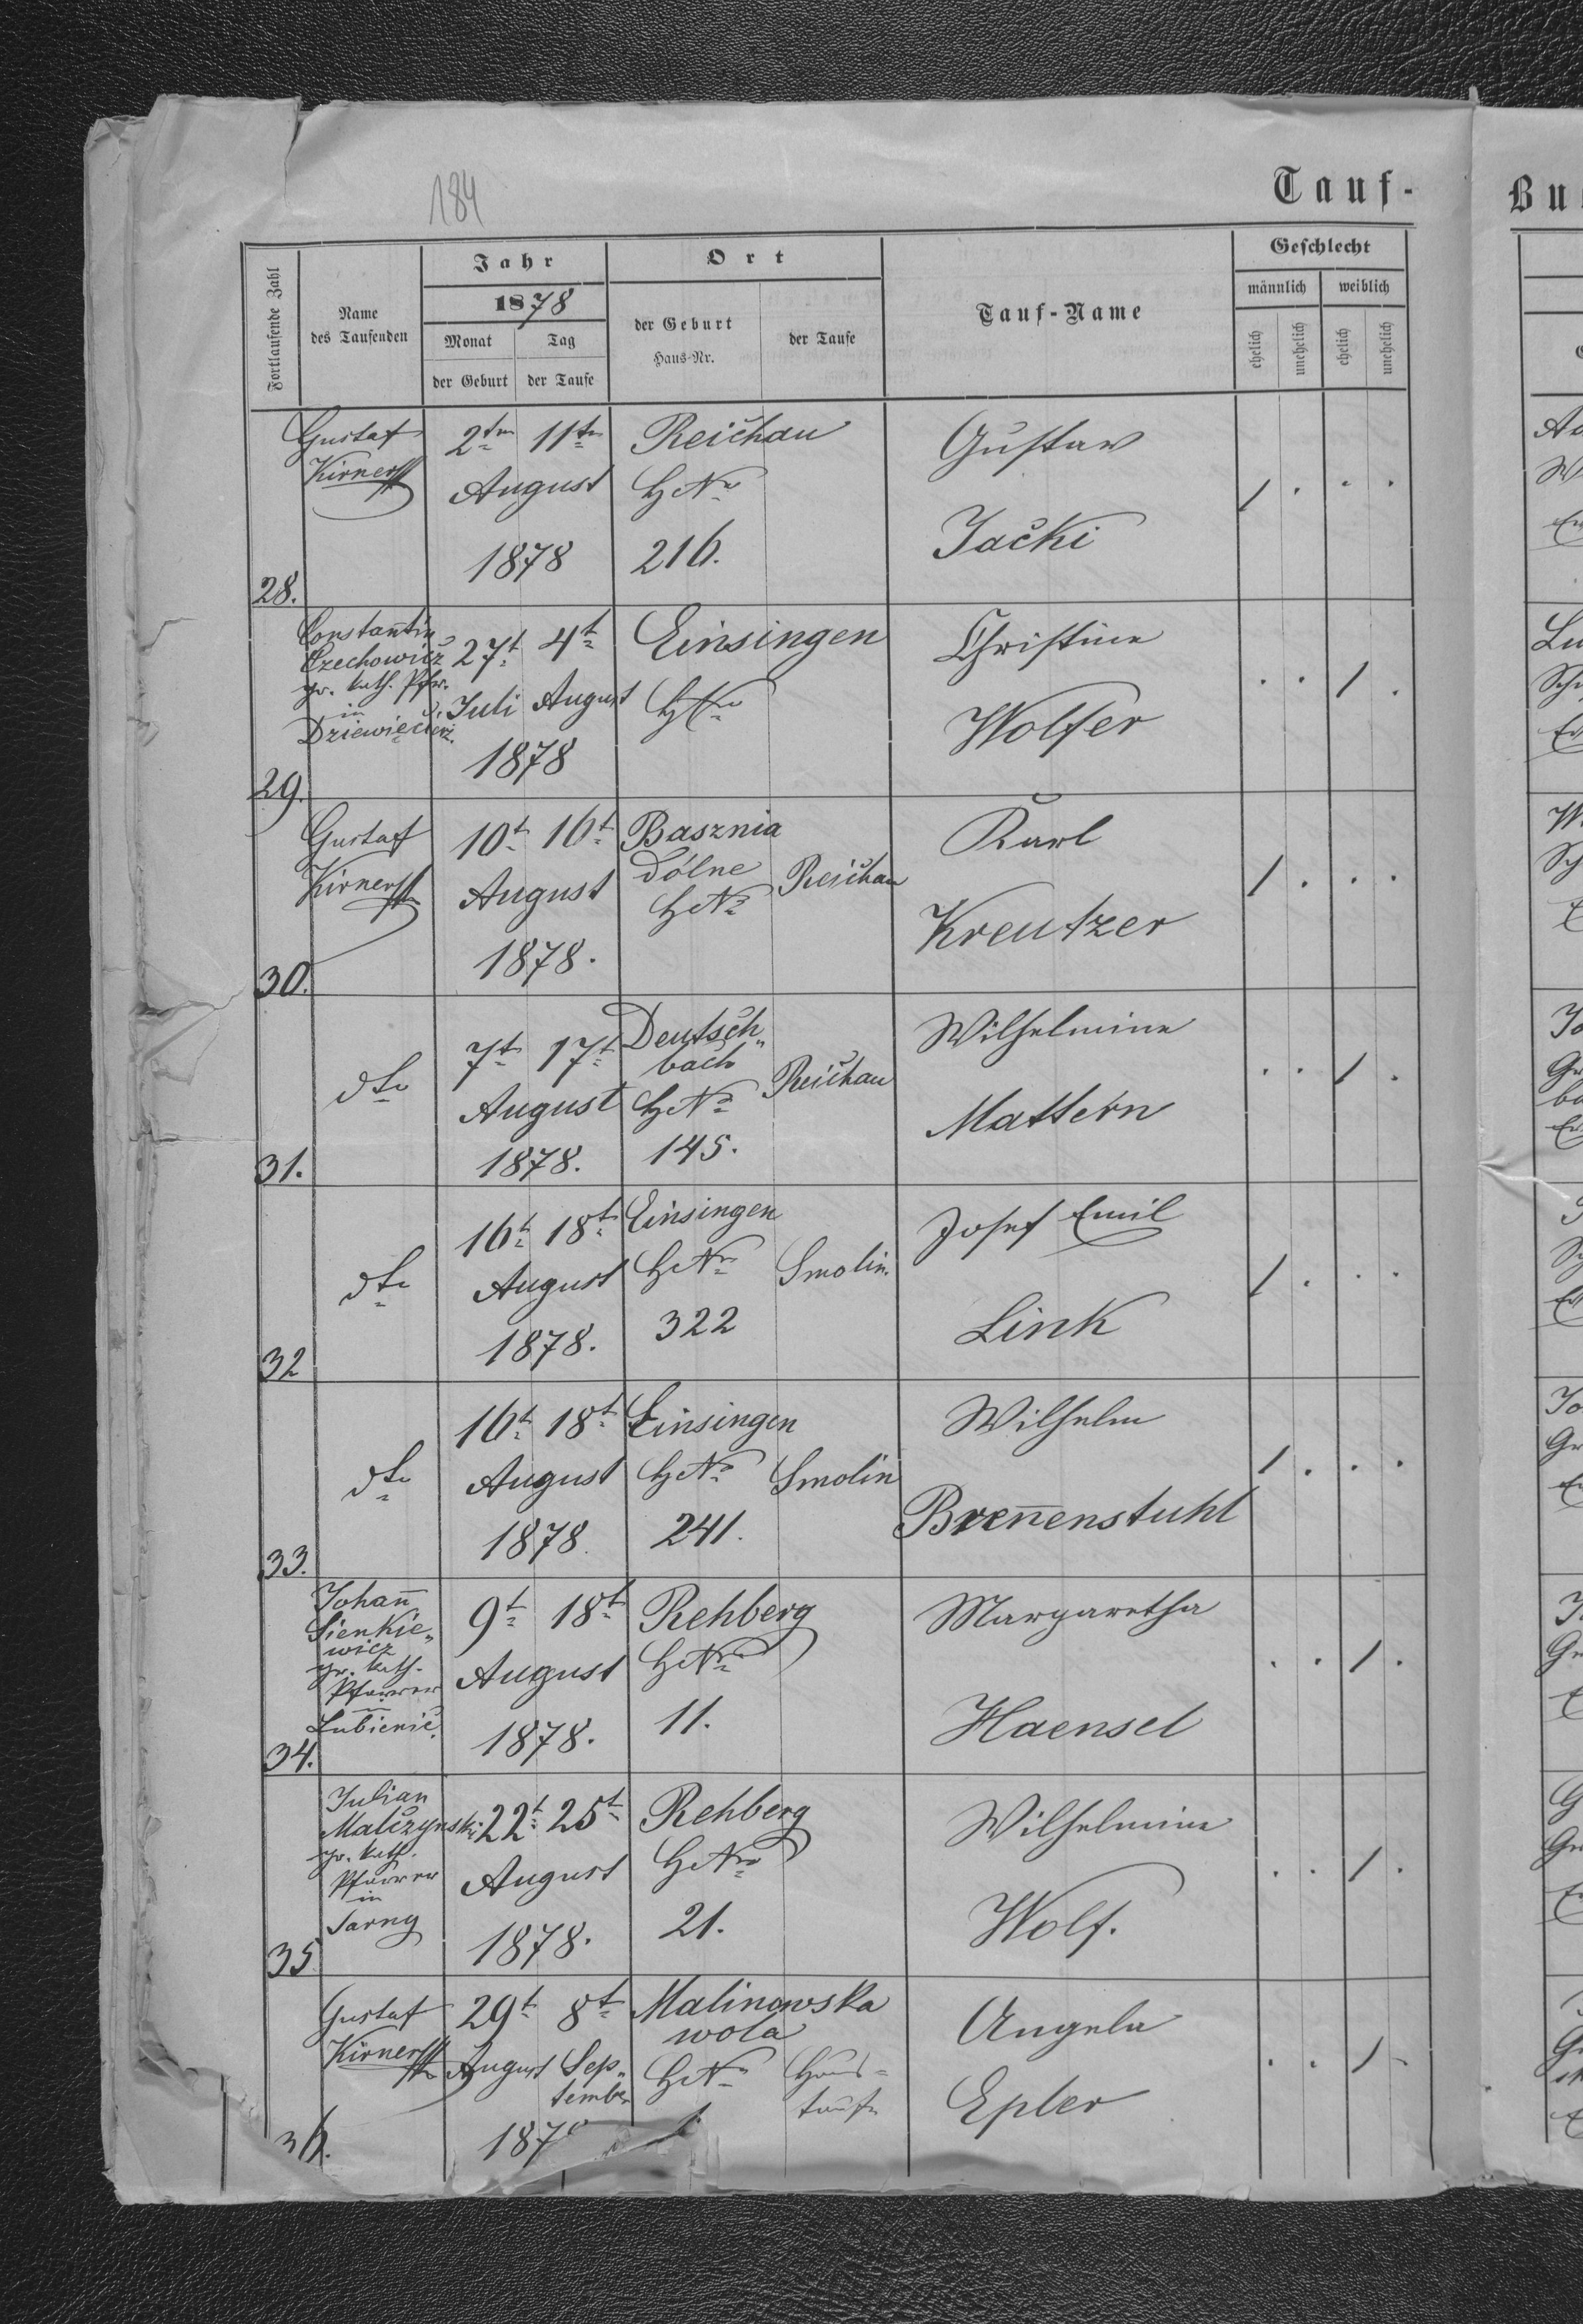 184
Tauf-
Fortlaufende Zahl
Name
des Taufenden
Jahr
1878
Monat
Tag
der Geburt
der Taufe
Ort
der Geburt
Haus-Nr.
der Taufe
Tauf-Name
Geschlecht
männlich
weiblich
ehelich
unehelich
ehelich
unehelich
28.
Gustaf
Kirner
2tn 11tn
August
1878
Reichau
HNr
216.
Gustav
Jacki
29.
Constantin
Czechowicz
gr. kath. Pfr.
in
Dziewięcierz.
27t 4t
Juli August
1878
Einsingen
HNr
Christine
Wolfer
30.
Gustaf
Kirner
10t 16t
August
1878.
Basznia
dólne
HNr
Reichau
Karl
Kreutzer
31.
dto
7t 17t
August
1878.
Deutsch„
bach
HNr
145.
Reichau
Wilhelmine
Mattern
32
dto
16t 18t
August
1878.
Einsingen
HNr
322
Smolin.
Josef Emil
Link
33.
dto
16t 18t
August
1878.
Einsingen
HNr
241.
Smolin
Wilhelm
Breñenstuhl
34.
Johañ
Sienkie„
wicz
gr. kath.
Pfarrer
Lubienie.
9t 18t
August
1878.
Rehberg
HNr
11.
Margaretha
Haensel
35
Julian
Malczynski
gr. kath.
Pfarrer
in
22t 25t
August
1878.
Rehberg
HNro
21.
Wilhelmine
Wolf.
36.
Gustaf
Kirner
29t 8t
August Sep„
tember
187
Malinowska
wola
HNr
Haus=
taufe
Angela
Epler